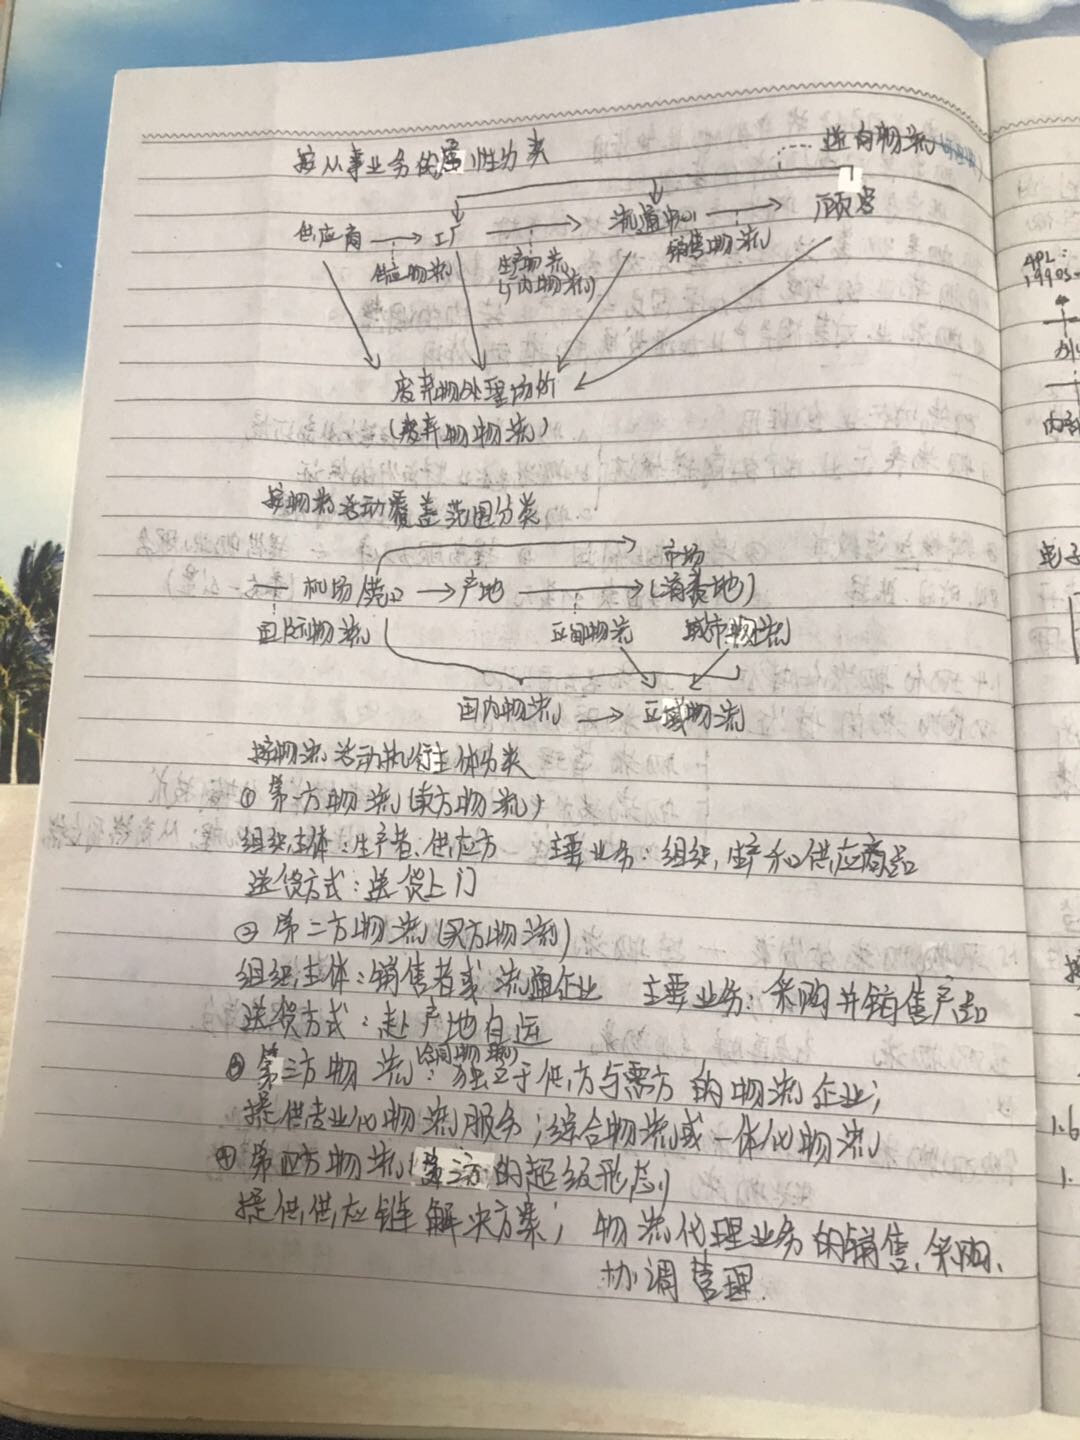 按从事业务的属性分类
逆向物流
供应商 工厂 流通中心 顾客
供应物流 生产物流 销售物流
(厂内物流)
废弃物处理场所
(废弃物物流)
按物流活动覆盖范围分类
市场
机场 港口 产地 (消费地)
国际物流 区间物流 城市物流
国内物流 区域物流
按物流活动执行主体分类
① 第一方物流(卖方物流)
组织主体:生产者、供应方 主要业务:组织,生产和供应商品
送货方式:送货上门
② 第二方物流(买方物流)
组织主体:销售者或流通企业 主要业务:采购并销售产品
送货方式:赴产地自运
③ 第三方物流(合同物流):独立于供方与需方的物流企业;
提供专业化物流服务;综合物流或一体化物流
④ 第四方物流(第三方的超级形态)
提供供应链解决方案;物流代理业务的销售、采购、
协调管理.
APL:
1990s
内部
电子
1.6
1.